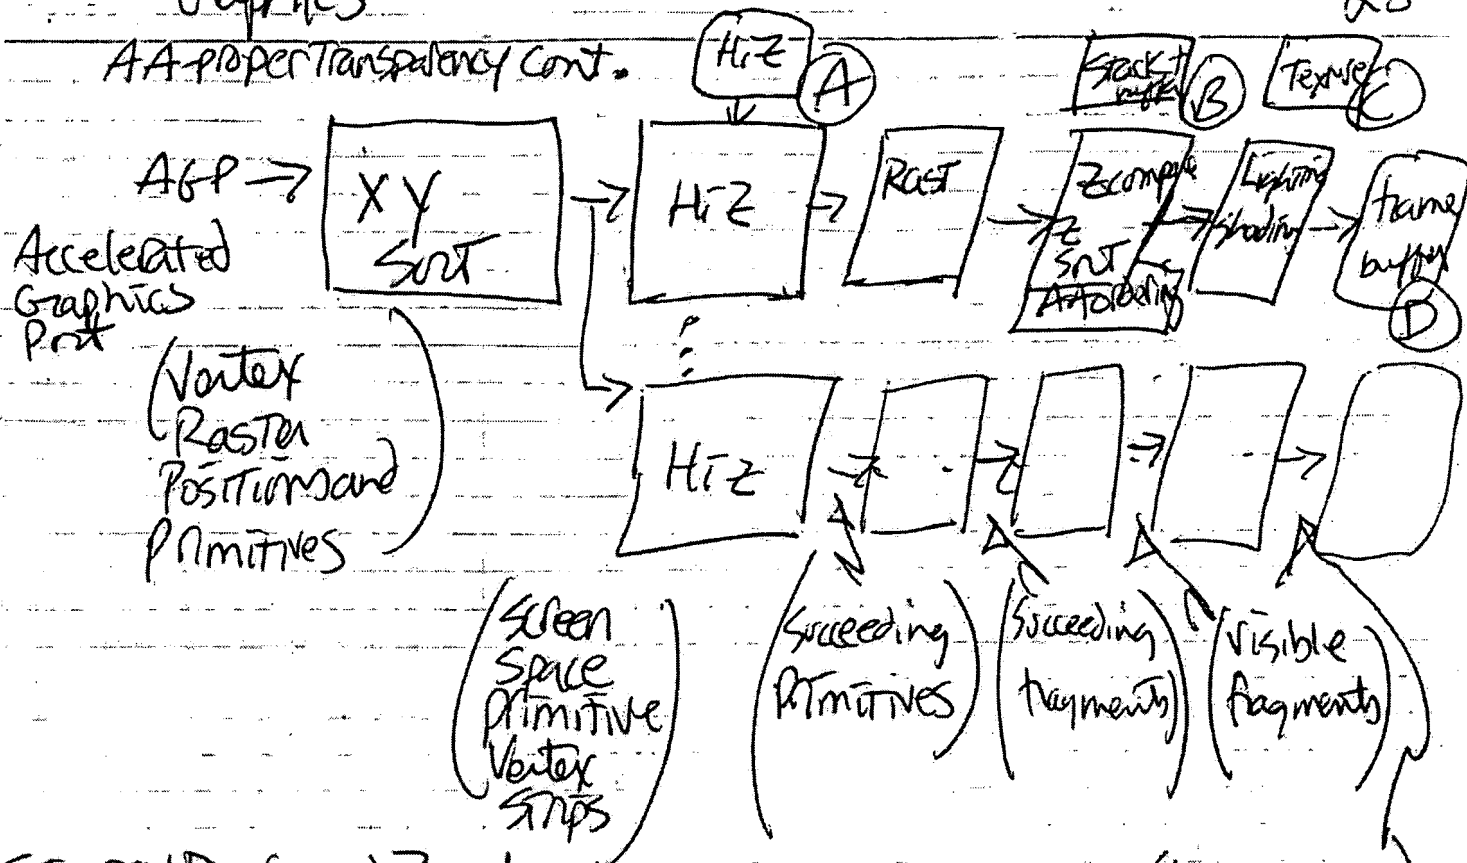 Graphics
AA-proper Transparency cont.
HiZ
A
Stack +
B
Texture
C
AGP →
XY
Sort
HiZ
Rast
Zcompare
Z
Sort
AA ordering
Lighting
Shading
frame
buffer
D
Accelerated
Graphics
Port
(Vertex
Raster
Positions and
Primitives)
HiZ
(Screen
Space
Primitive
Vertex
Strips)
(Succeeding
Primitives)
(Succeeding
fragments)
(Visible
fragments)